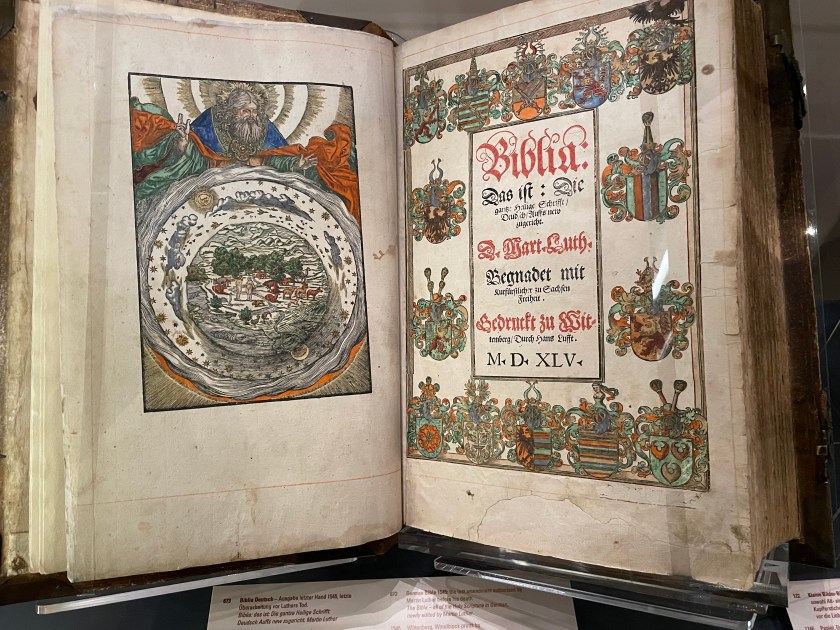 Biblia:
Das ist: Die
gantze Heilige Schrifft/
Deudsch/Auffs new
zugericht.
D. Mart. Luth.
Begnadet mit
Kurfürstlicher zu Sachsen
Freiheit.
Gedruckt zu Wit-
temberg/Durch Hans Lufft.
M. D. XLV.
Biblia Deutsch – Ausgabe letzter Hand 1545, letzte
Überarbeitung vor Luthers Tod.
Biblia: das ist: Die gantze Heilige Schrifft
Deutsch Auffs new zugericht. Martin Luther
German Bible 1545 the last amendment authorised by
Martin Luther before his death.
The Bible – all of the Holy Scripture in German,
newly edited by Martin Luther